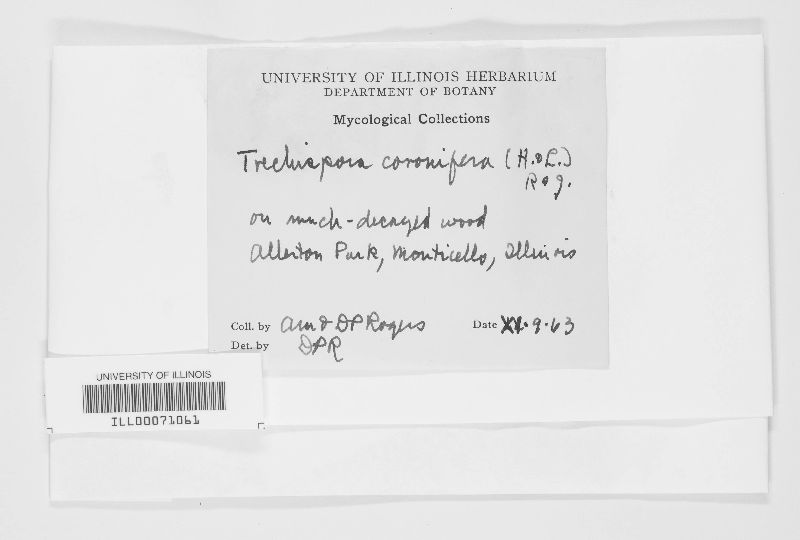 UNIVERSITY OF ILLINOIS HERBARIUM
DEPARTMENT OF BOTANY
Mycological Collections
Trechispora coronifera (H.&L.)
Rog.
on much-decayed wood
Allerton Park, Monticello, Illinois
Coll. by AM & DP Rogers Date XI.9.63
Det. by DPR
UNIVERSITY OF ILLINOIS
ILL00071061